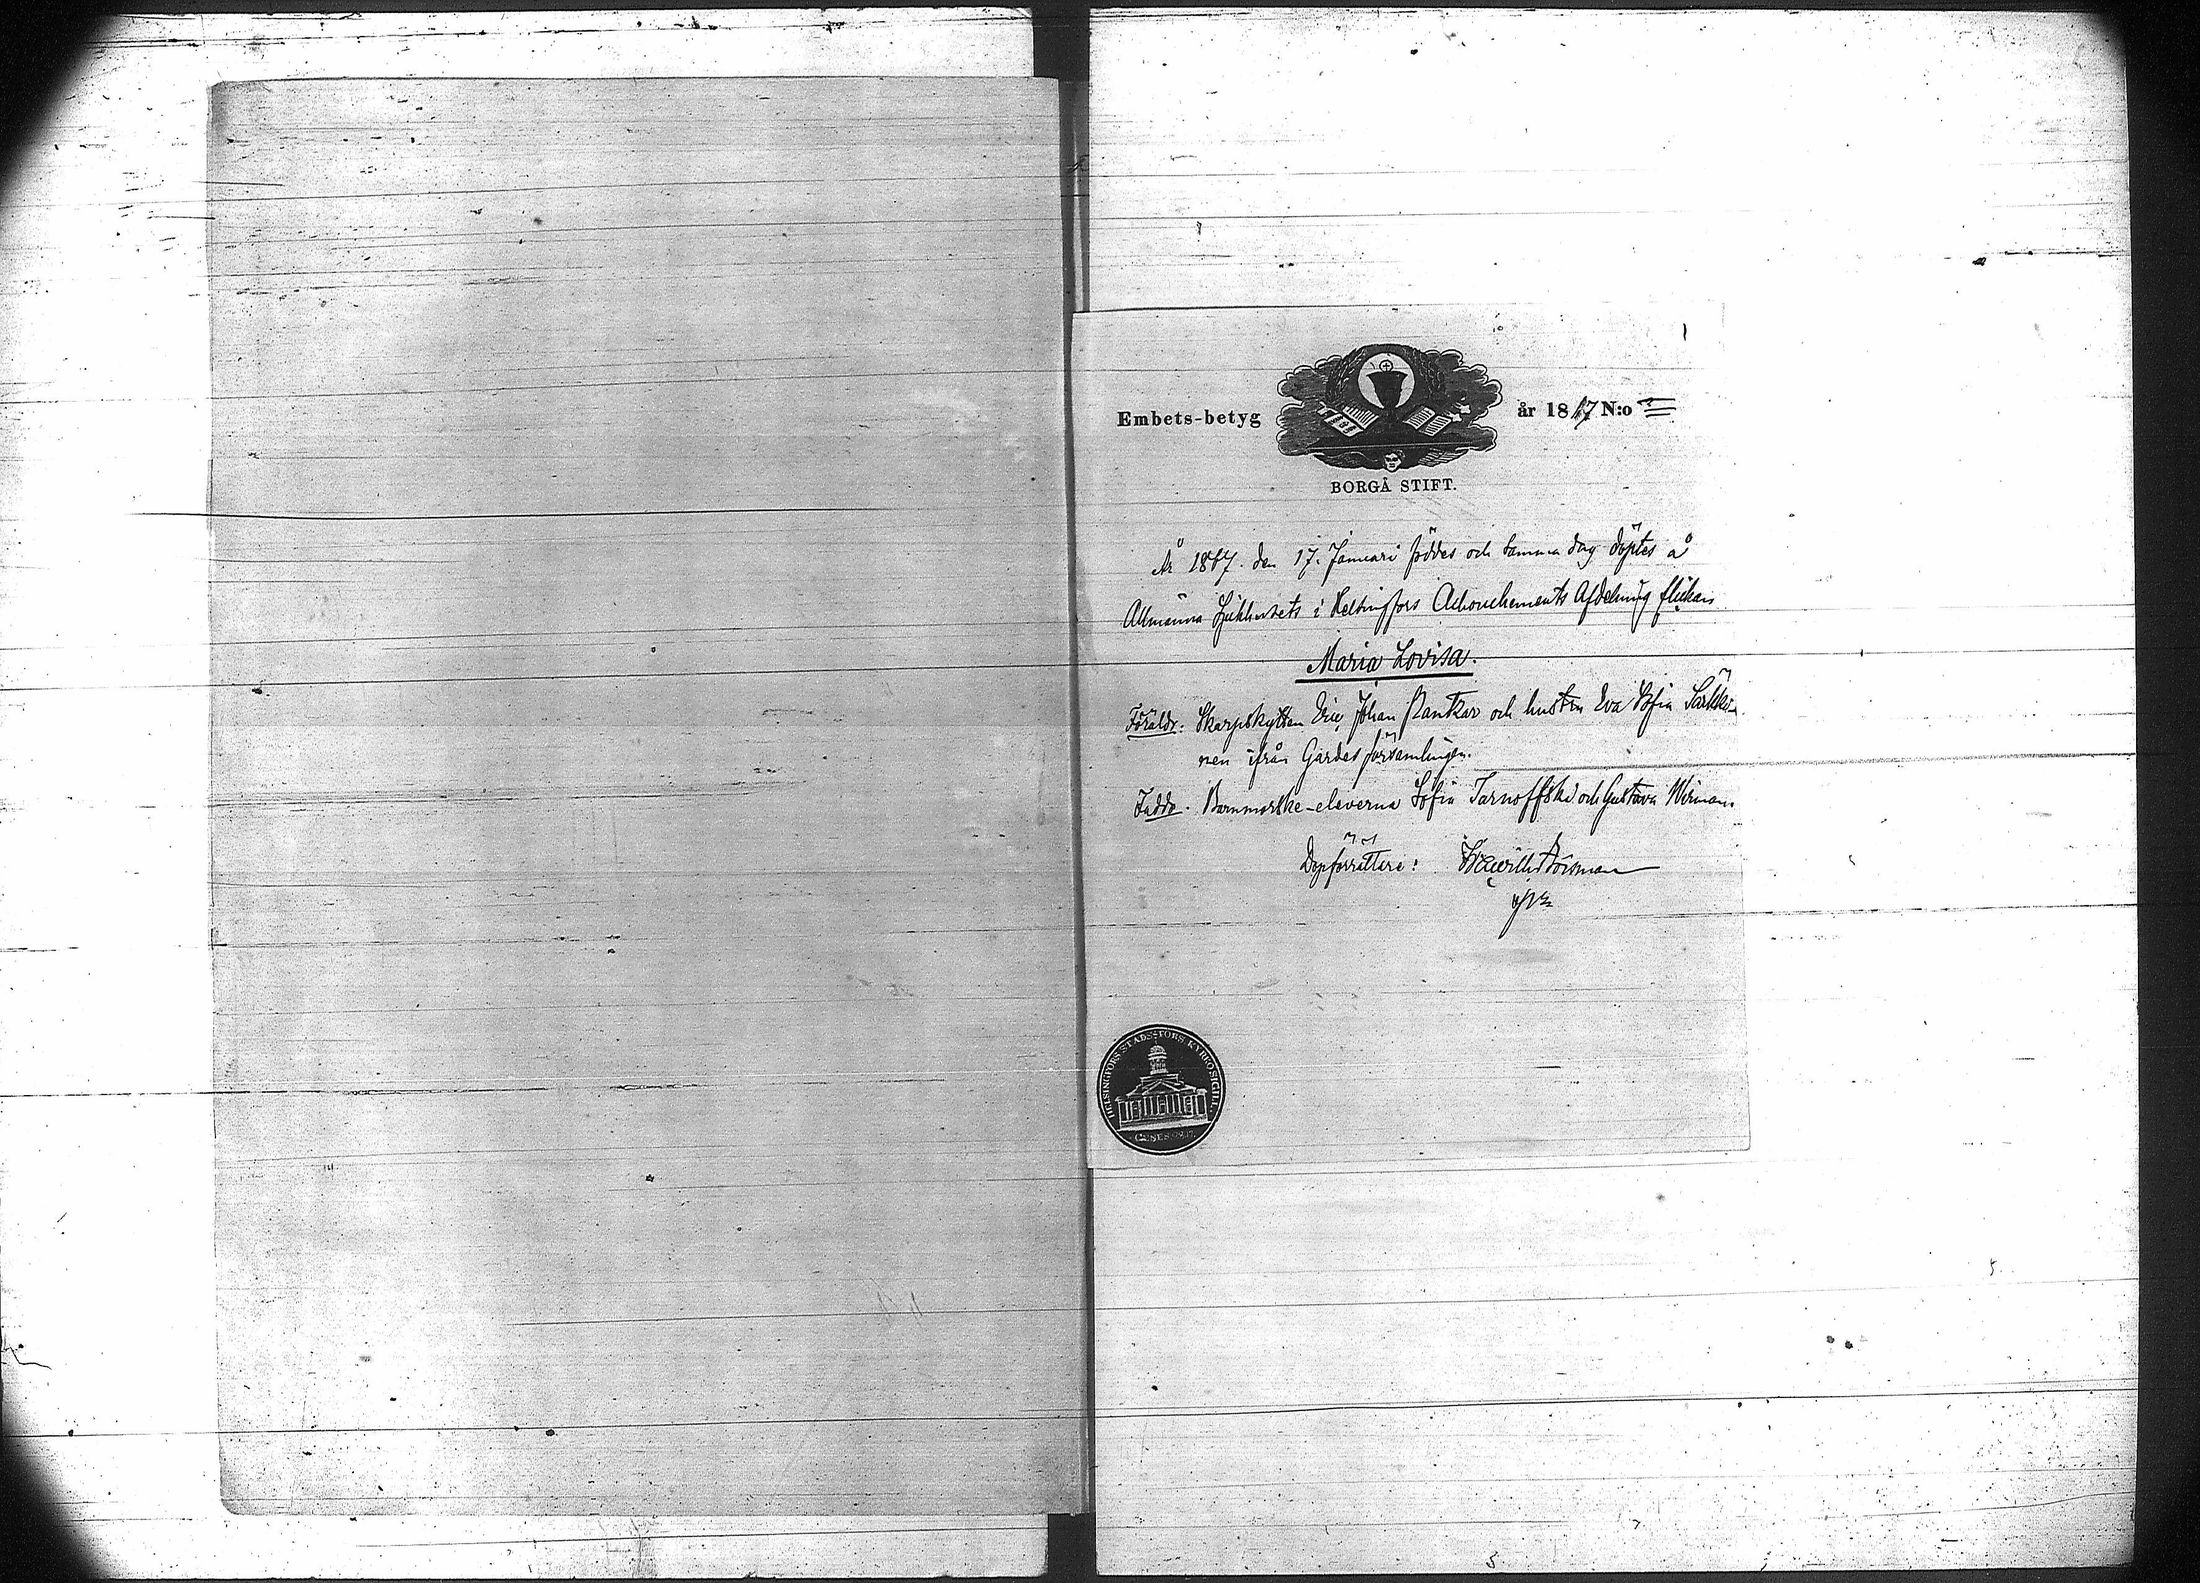 Embets-betyg
år 1867 N:o
BORGÅ STIFT.
År 1867. den 17. Januari föddes och samma dag döptes å
Allmänna Sjukhusets i Helsingfors Accouchements Afdelning flickan
Maria Lovisa.
Föräldr: Skarpskytten Eric Johan Pankar och hustru Eva Sofia Särkki-
nen ifrån Gardes församlingen.
Faddr. Barnmorske-eleverna Sofia Tarnoffski och Gustava Wirman.
Dopförrättare:
HELSINGFORS STADSFÖRS KYRKOSIGILL.